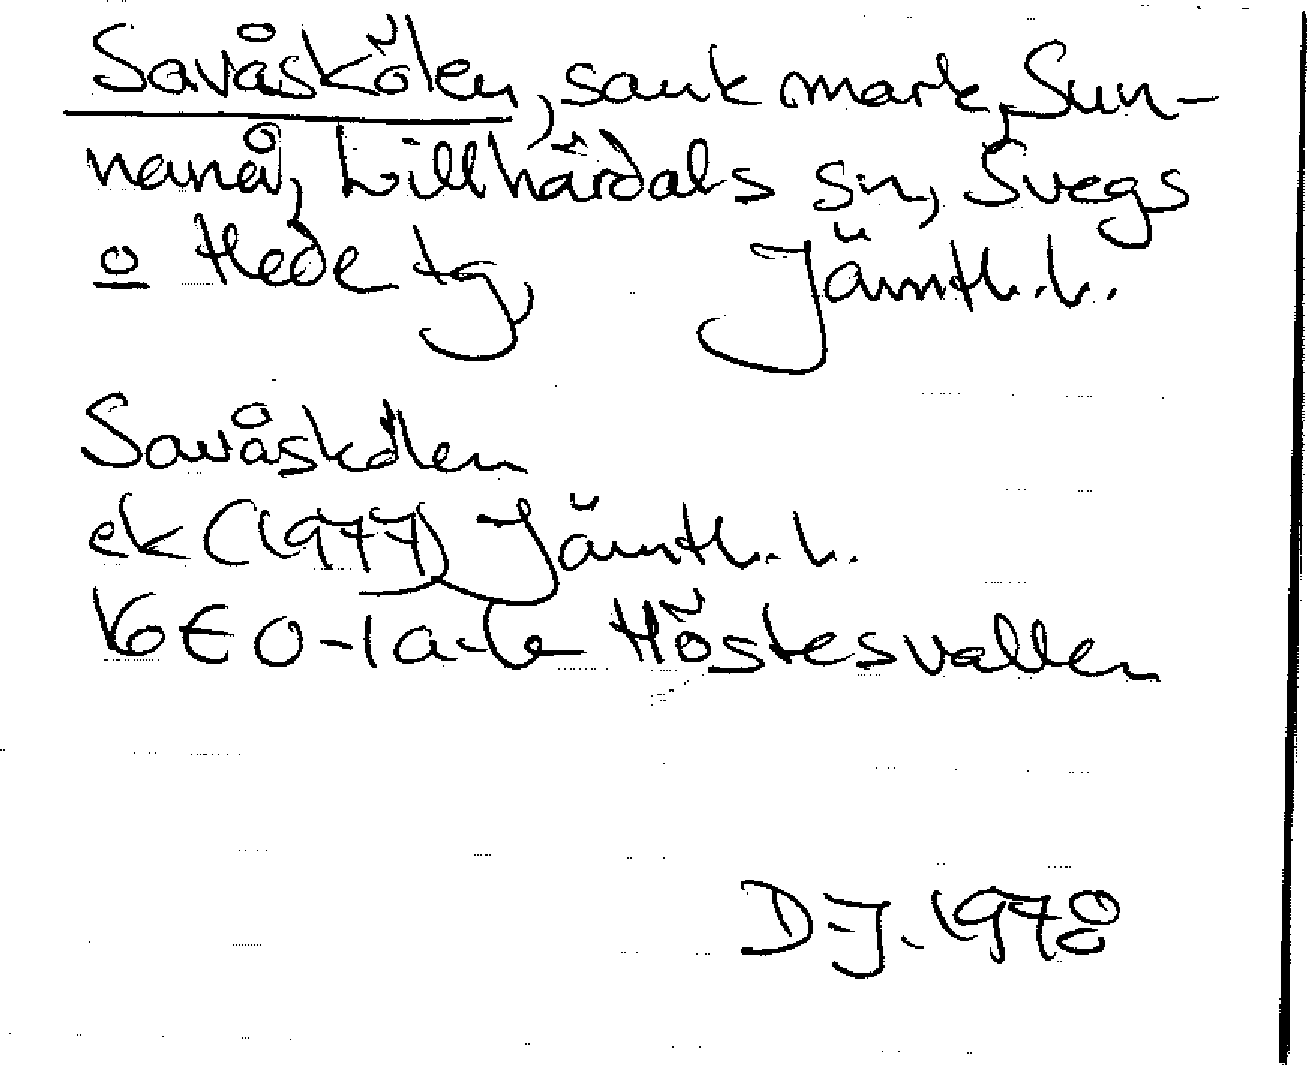 Savåskölen, sank mark, Sun-
nanå, Lillhärdals sn, Svegs
o Hede tg, Jämtl. l.
Savåskölen
ek (1977) Jämtl. l.
16E 0-1a-b Höstesvallen
DJ. 1978